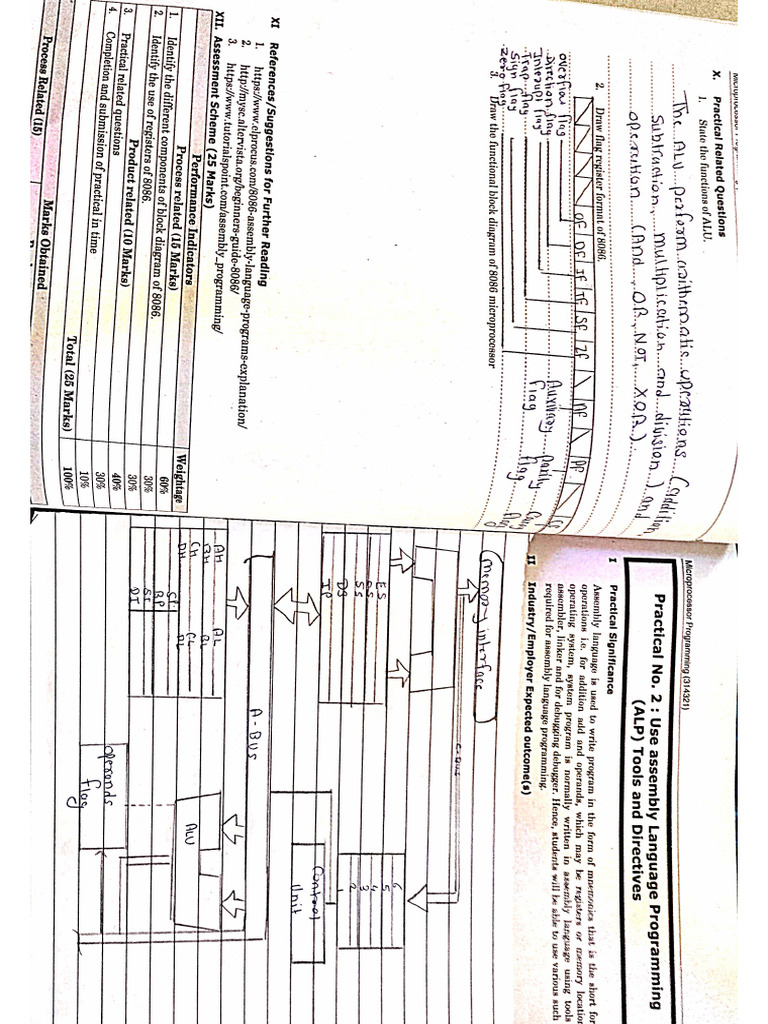 X. Practical Related Questions
1. State the functions of ALU.
The ALU preform arithematic operations (addition,
Subtraction, multiplication and division) and
operation (And, OR, NOT, XOR).
2. Draw flag register format of 8086.
OF DF IF TF SF ZF AF PF
Overflow flag
Direction flag
Interupt flag
Trap flag
Sign flag
Zero flag
Auxiliary flag
Parity flag
3. Draw the functional block diagram of 8086 microprocessor
XI References/Suggestions for Further Reading
1. https://www.elprocus.com/8086-assembly-language-programs-explanation/
2. http://nysc.altervista.org/beginners-guide-8086/
3. https://www.tutorialspoint.com/assembly_programming/
XII. Assessment Scheme (25 Marks)
Performance Indicators Weightage
Process related (15 Marks) 60%
1. Identify the different components of block diagram of 8086. 30%
2. Identify the use of registers of 8086. 30%
Product related (10 Marks) 40%
3. Practical related questions 30%
4. Completion and submission of practical in time 10%
Total (25 Marks) 100%
Process Related (15) Marks Obtained
Microprocessor Programming (314321)
Practical No. 2 : Use assembly Language Programming
(ALP) Tools and Directives
I Practical Significance
Assembly language is used to write program in the form of mnemonics that is the short for
operations i.e. for addition add and operands, which may be registers or memory location
operating system, system program is normally written in assembly language using tools
assembler, linker and for debugging debugger. Hence, students will be able to use various such
required for assembly language programming.
II Industry/Employer Expected outcome(s)
Memory interface
C-BUS
ES
SS
DS
IP
6
5
4
3
2
1
Control
Unit
A-BUS
AH AL
BH BL
CH CL
DH DL
SP
BP
SI
DI
ALU
operands
flag